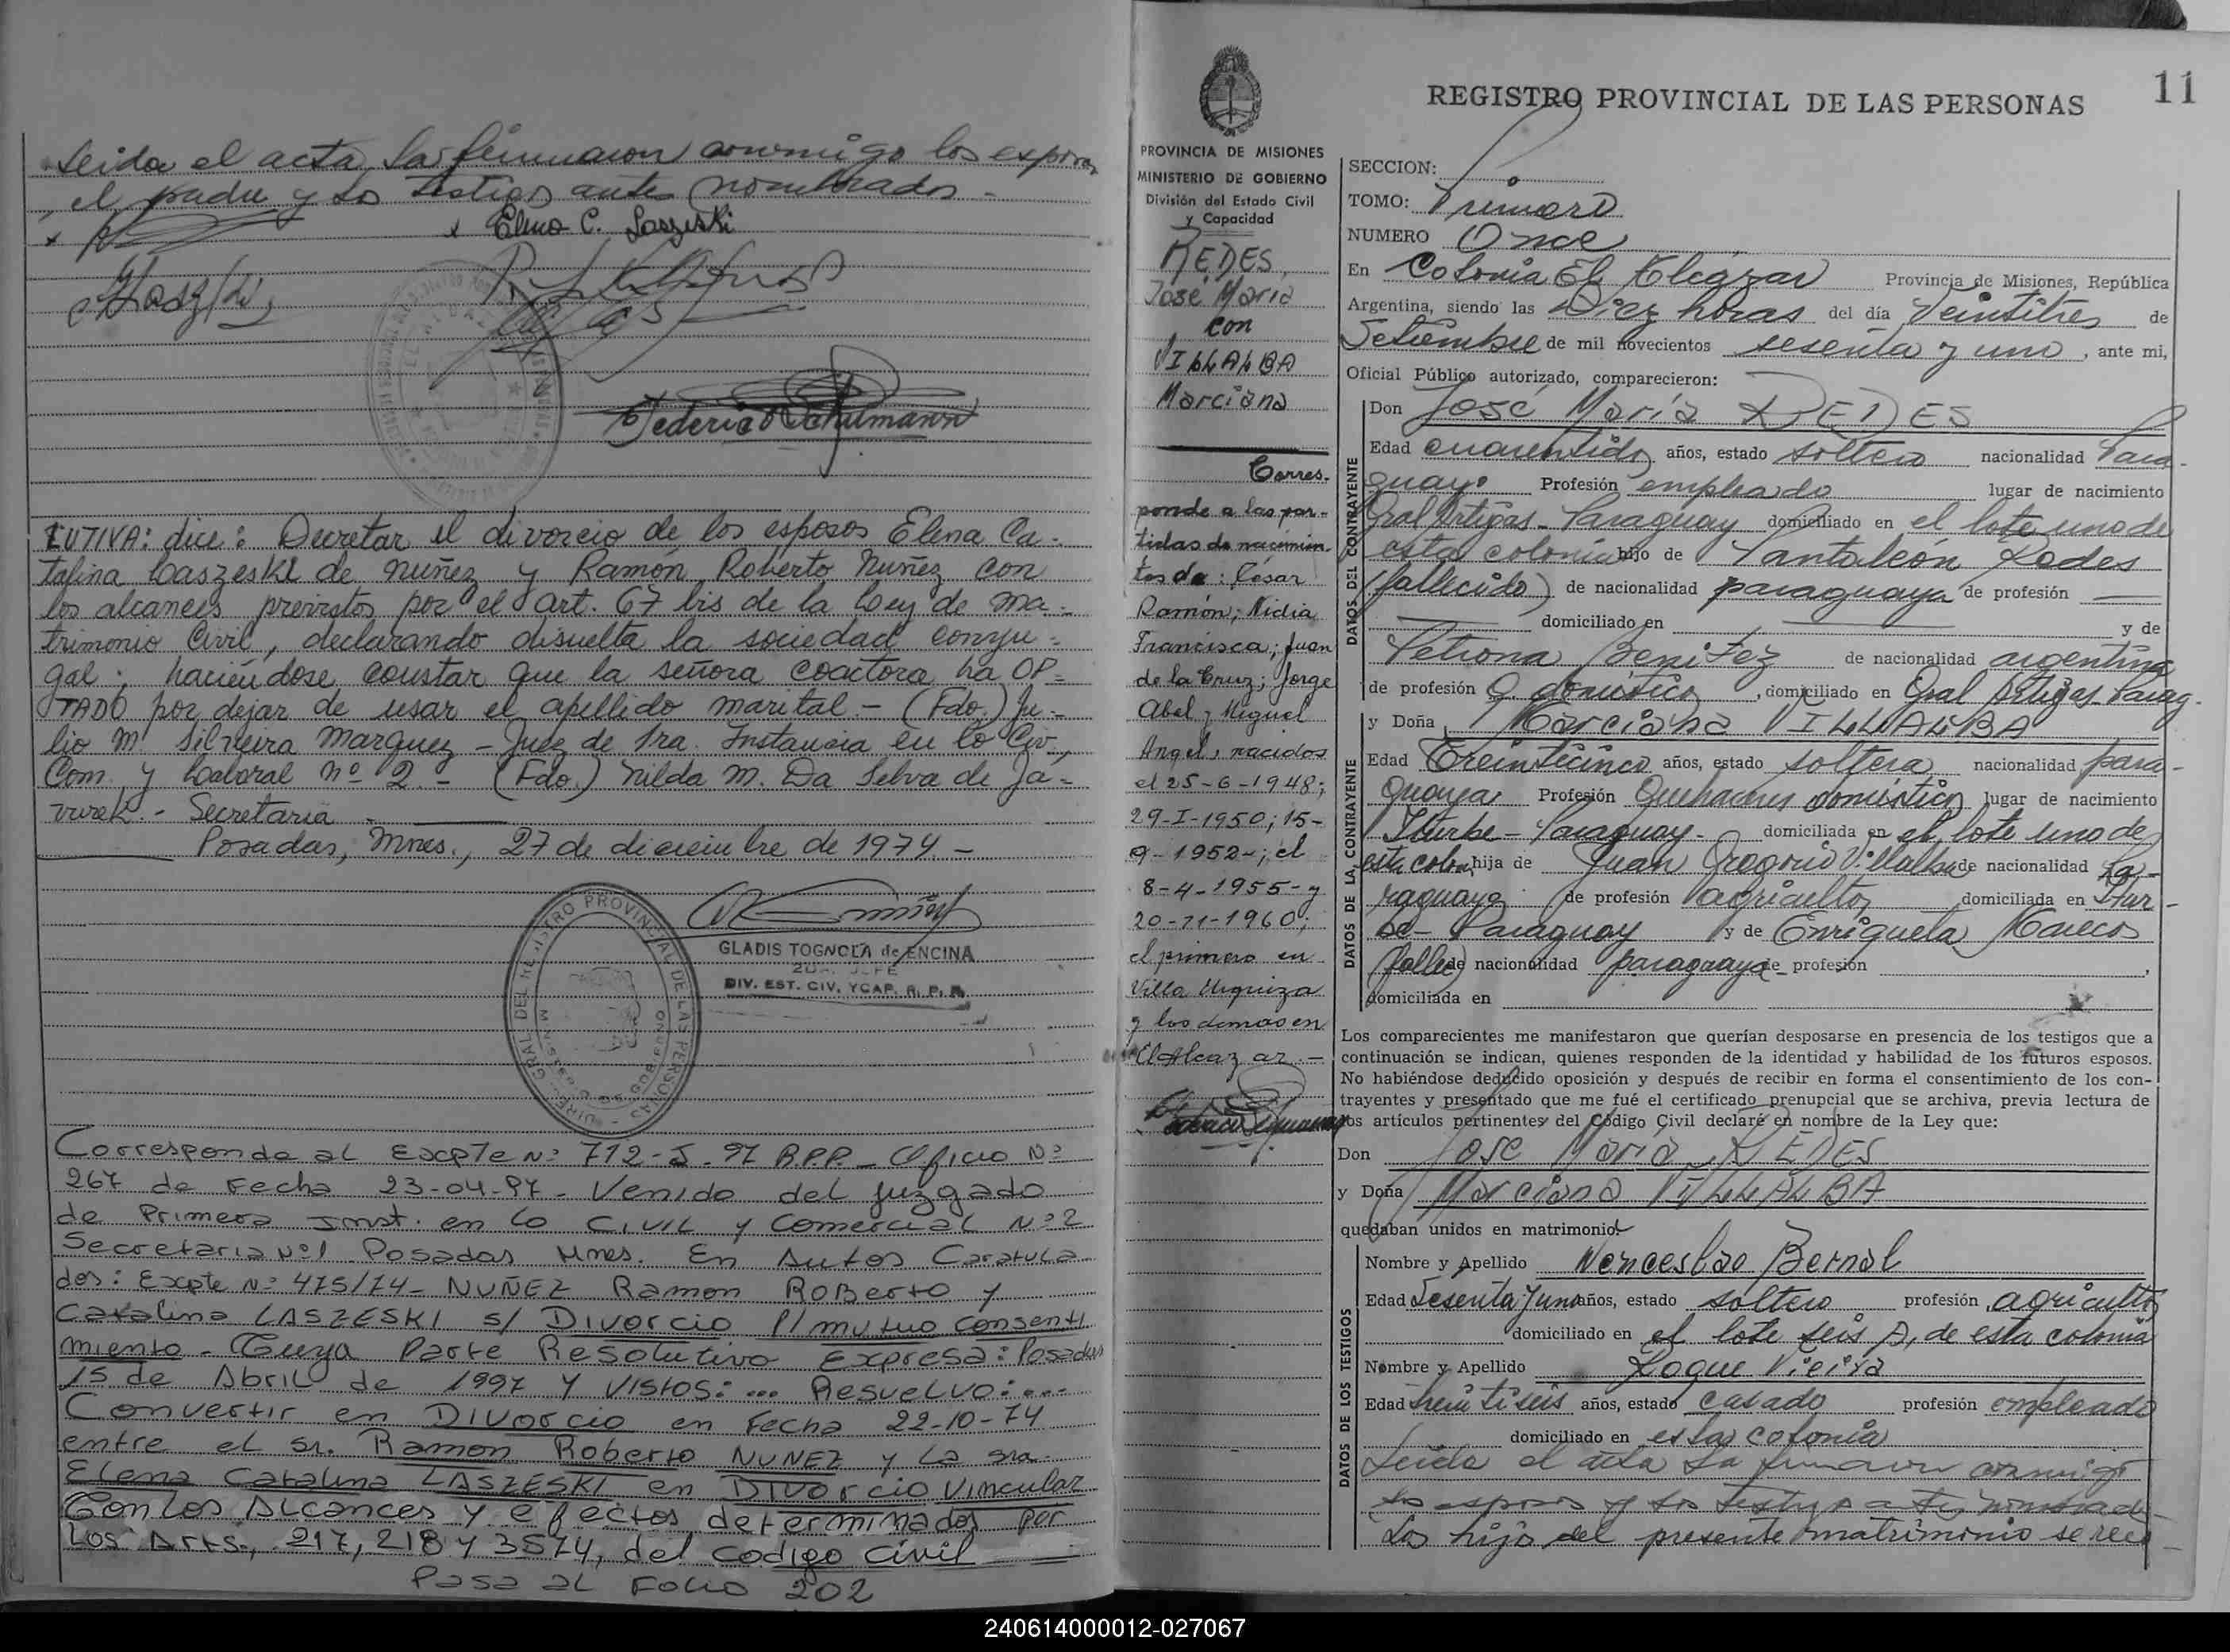 Leida el acta, la firmaron conmigo los esposos
, el padre y los testigos antes nombrados.-
x
x Elena C. Laszeski
Federico Schumann
EUTIVA: dice: Decretar el divorcio de los esposos Elena Ca-
talina Laszeski de Nuñez y Ramón Roberto Nuñez con
los alcances previstos por el art. 67 bis de la Ley de Ma-
trimonio Civil, declarando disuelta la sociedad conyu-
gal; haciéndose constar que la señora coactora ha OP-
TADO por dejar de usar el apellido marital.- (Fdo.) Ju-
lio M. Silveira Marquez - Juez de 1ra. Instancia en lo Civ.,
Com. y Laboral nº 2.- (Fdo.) Nilda M. Da Selva de Ja-
- Secretaria.
Posadas, Mnes., 27 de diciembre de 1974.-
GLADIS TOGNOLA de ENCINA
JEFE
DIV. EST. CIV. Y CAP. R. P. P.
Corresponde al Expte Nº 712-J-97 RPP.- Oficio Nº
267 de Fecha 23-04-97 - Venido del Juzgado
de Primera Inst. en lo Civil y Comercial Nº 2
Secretaria Nº 1 Posadas Mnes. En Autos Caratula
dos: Expte Nº 475/74 - NUÑEZ Ramon Roberto y
Catalina LASZESKI s/ Divorcio P/ mutuo Consenti
miento - Cuya Parte Resolutiva Expresa: Posadas
15 de Abril de 1997 Y Vistos: ... Resuelvo: ...
Convertir en Divorcio en Fecha 22-10-74
entre el Sr. Ramon Roberto NUNEZ y La Sra.
Elena Catalina LASZESKI en Divorcio Vincular
Con los Alcances y efectos determinados por
Los Arts., 217, 218 y 3574, del Codigo Civil
Pasa al Folio 202
PROVINCIA DE MISIONES
MINISTERIO DE GOBIERNO
División del Estado Civil
y Capacidad
REDES,
José María
con
VILLALBA
Marciana
Corres-
ponde a las par-
tidas de nacimien-
tos de: César
Ramón; Nidia
Francisca; Juan
de la Cruz; Jorge
Abel y Miguel
Angel, nacidos
el 25-6-1948;
29-I-1950; 15-
9-1952-; el
8-4-1955- y
20-11-1960;
el primero en
Villa Urquiza
y los demas en
El Alcazar.-
11
REGISTRO PROVINCIAL DE LAS PERSONAS
SECCION:
TOMO: Primero
NUMERO Once
En Colonia El Alcázar Provincia de Misiones, República
Argentina, siendo las Diez horas del día Veintitres de
Setiembre de mil novecientos sesenta y uno, ante mi,
Oficial Público autorizado, comparecieron:
DATOS DEL CONTRAYENTE
Don José María REDES
Edad cuarentidos años, estado soltero nacionalidad Para-
guayo Profesión empleado lugar de nacimiento
Gral Artigas - Paraguay domiciliado en el lote uno de
esta colonia hijo de Pantaleón Redes
(fallecido) de nacionalidad paraguaya de profesión
domiciliado en y de
Petrona Benitez de nacionalidad argentina
de profesión Q. doméstico, domiciliado en Gral Artigas-Parag-
DATOS DE LA CONTRAYENTE
y Doña Marciana VILLALBA
Edad Treinticinco años, estado soltera nacionalidad para-
guaya Profesión Quehaceres domésticos lugar de nacimiento
Iturbe - Paraguay - domiciliada en el lote uno de
esta colon. hija de Juan Gregorio Villalba de nacionalidad Pa-
raguaya de profesión agricultor domiciliada en Itur-
be - Paraguay y de Enriqueta Mareco
(fallec) de nacionalidad paraguaya de profesión ,
domiciliada en
Los comparecientes me manifestaron que querían desposarse en presencia de los testigos que a
continuación se indican, quienes responden de la identidad y habilidad de los futuros esposos.
No habiéndose deducido oposición y después de recibir en forma el consentimiento de los con-
trayentes y presentado que me fué el certificado prenupcial que se archiva, previa lectura de
los artículos pertinentes del Código Civil declaré en nombre de la Ley que:
Don José María REDES
y Doña Marciana VILLALBA
quedaban unidos en matrimonio.
DATOS DE LOS TESTIGOS
Nombre y Apellido Wenceslao Bernal
Edad Sesenta y uno años, estado soltero profesión agricultor
domiciliado en el lote seis A, de esta colonia
Nombre y Apellido Roque Vieira
Edad treintiseis años, estado casado profesión empleado
domiciliado en esta colonia
Leida el acta la firmaron conmigo
los esposos y los testigos antes nombrados
Los hijo del presente matrimonio se reco-
240614000012-027067